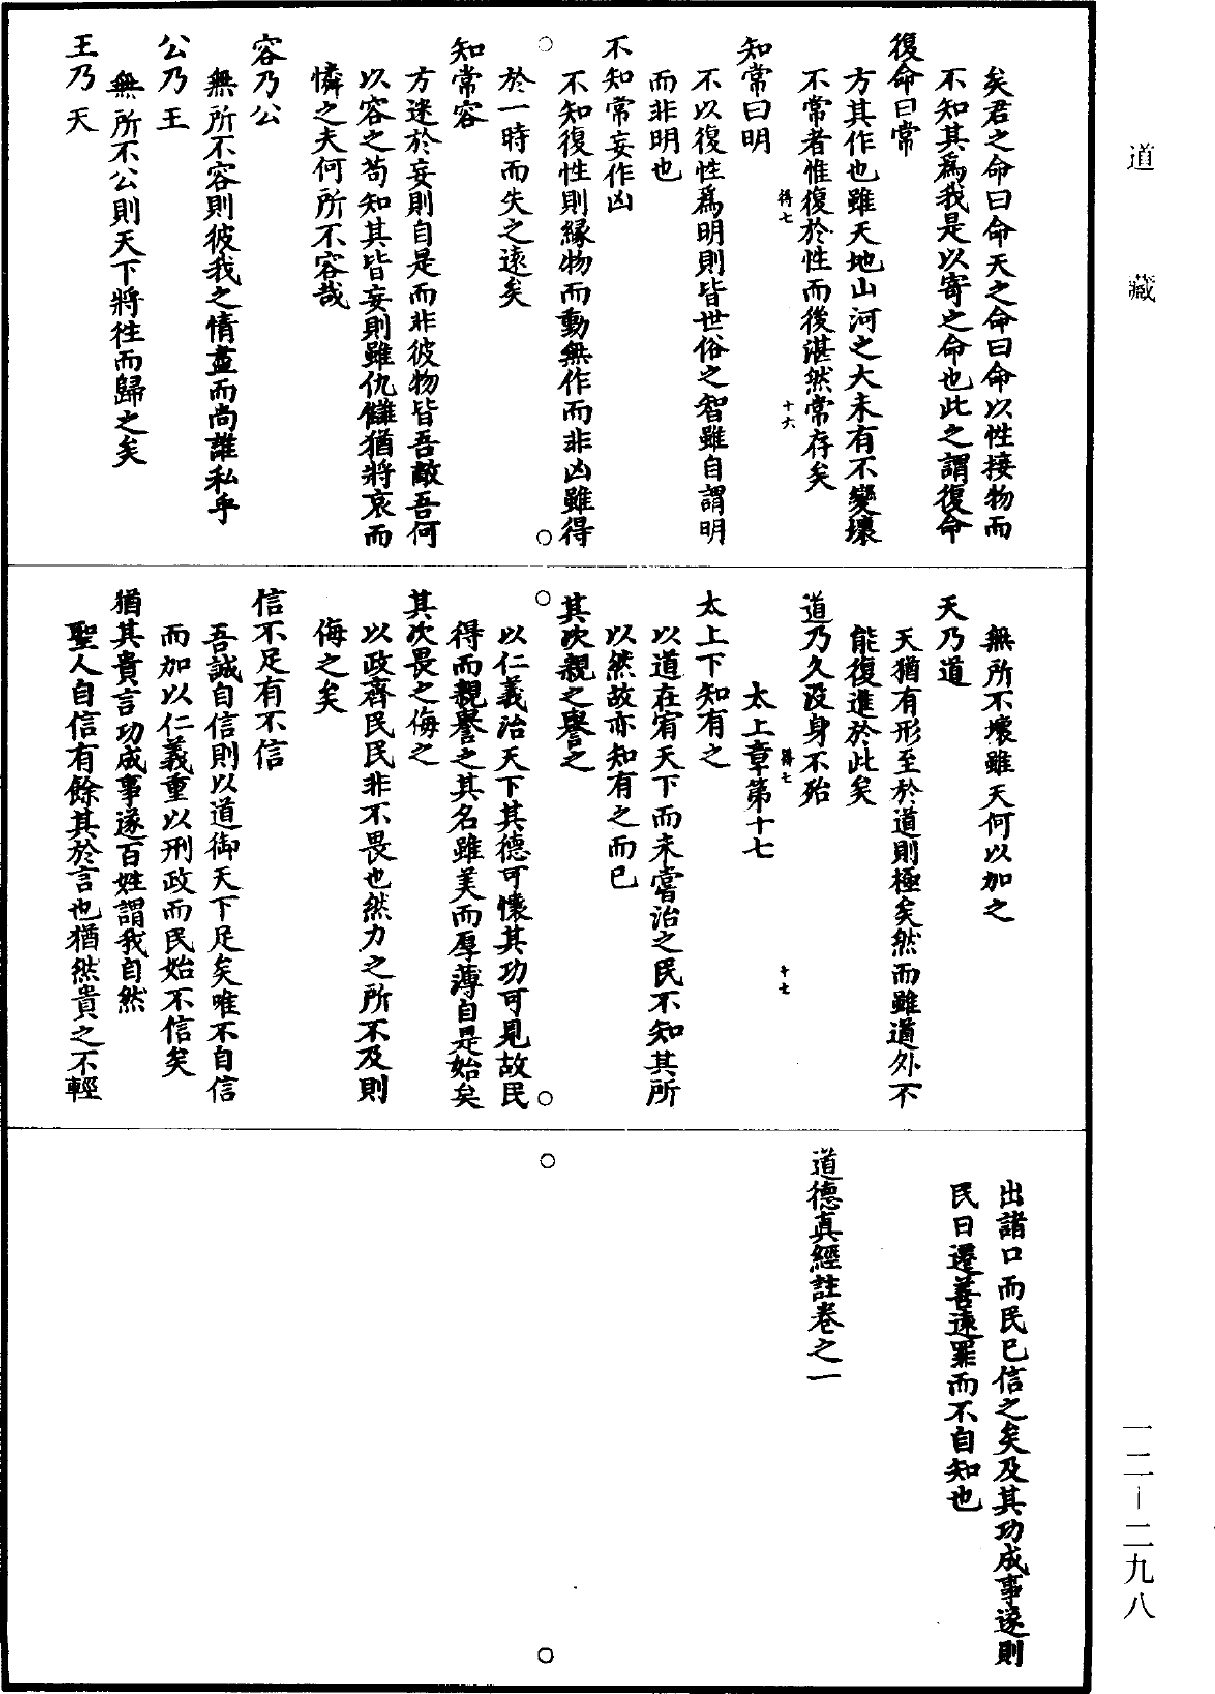 道藏
矣君之命曰命天之命曰命以性接物而
不知其爲我是以寄之命也此之謂復命
復命曰常
方其作也雖天地山河之大未有不變壞
不常者惟復於性而後湛然常存矣
得七
十六
知常曰明
不以復性爲明則皆世俗之智雖自謂明
而非明也
不知常妄作凶
不知復性則緣物而動無作而非凶雖得
於一時而失之遠矣
知常容
方迷於妄則自是而非彼物皆吾敵吾何
以容之苟知其皆妄則雖仇讎猶將哀而
憐之夫何所不容哉
容乃公
無所不容則彼我之情盡而尚誰私乎
公乃王
無所不公則天下將往而歸之矣
王乃天
無所不壞雖天何以加之
天乃道
天猶有形至於道則極矣然而雖道外不
能復進於此矣
道乃久沒身不殆
得七
十七
太上章第十七
太上下知有之
以道在宥天下而未嘗治之民不知其所
以然故亦知有之而已
其次親之譽之
以仁義治天下其德可懷其功可見故民
得而親譽之其名雖美而厚薄自是始矣
其次畏之侮之
以政齊民民非不畏也然力之所不及則
侮之矣
信不足有不信
吾誠自信則以道御天下足矣唯不自信
而加以仁義重以刑政而民始不信矣
猶其貴言功成事遂百姓謂我自然
聖人自信有餘其於言也猶然貴之不輕
出諸口而民已信之矣及其功成事遂則
民日遷善遠罪而不自知也
道德真經註卷之一
一二—二九八